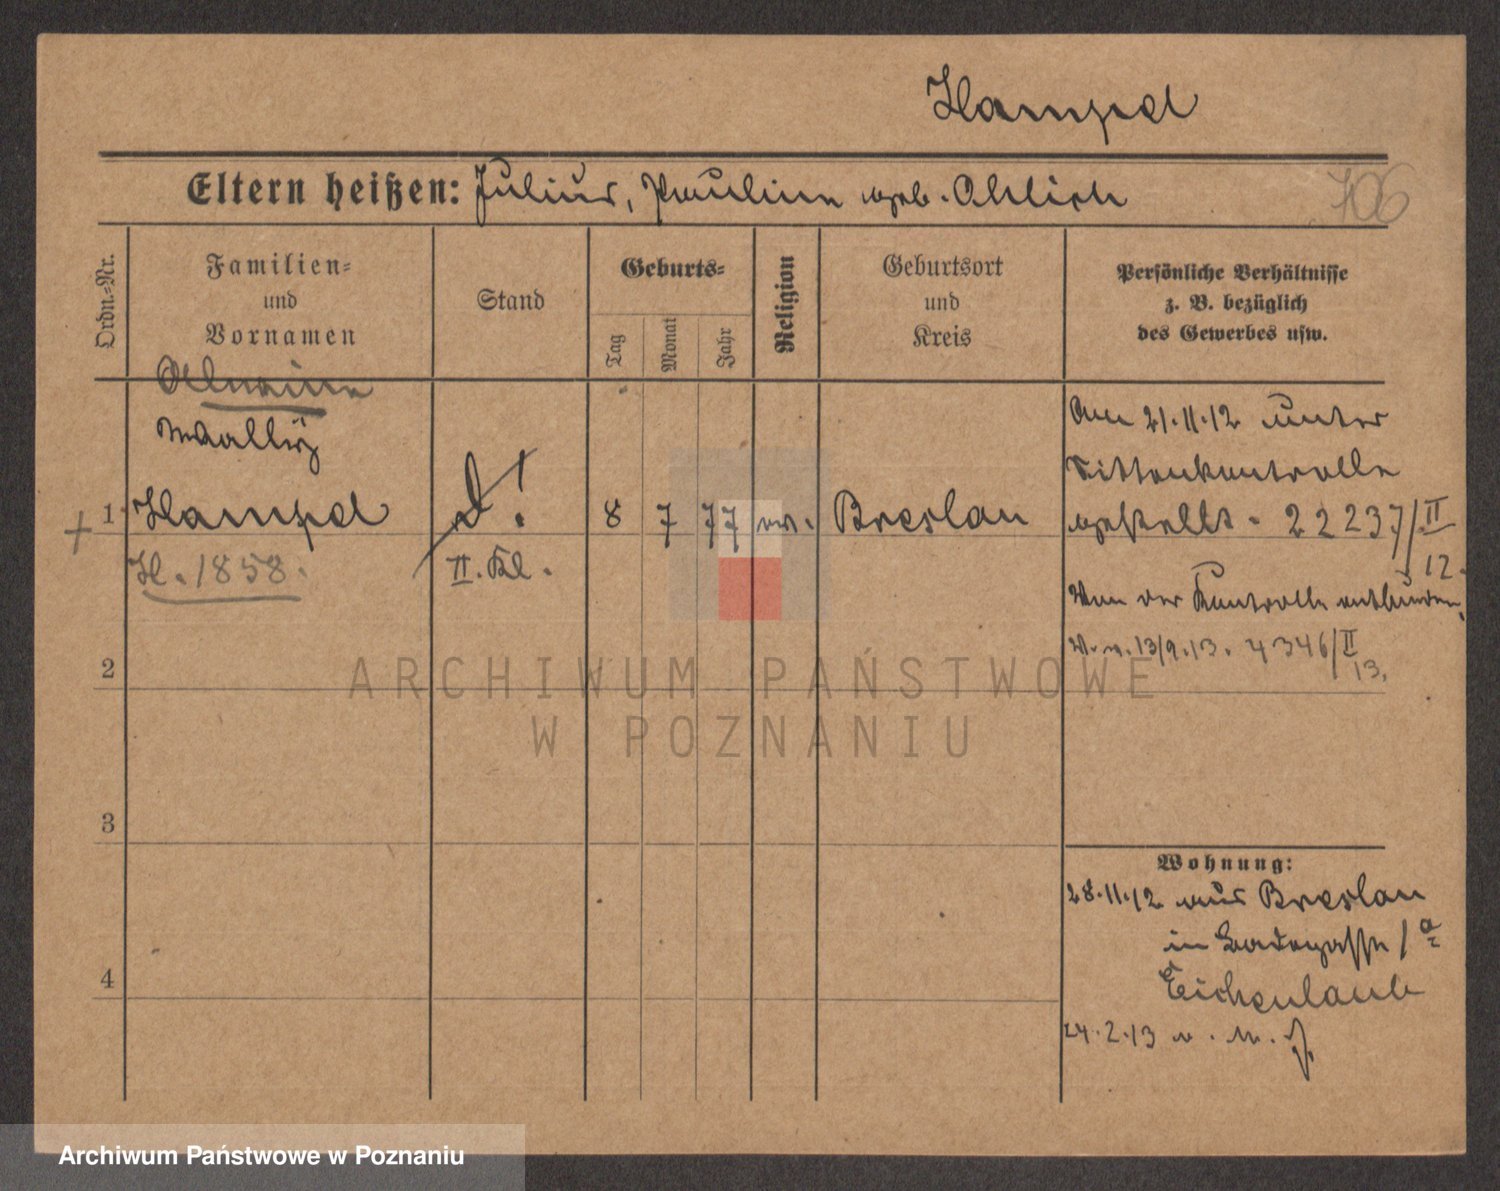 Hampel
Eltern heißen: Julius, Pauline geb. Ohlich
706
Ordn.-Nr.
Familien-
und
Vornamen
Stand
Geburts-
Tag
Monat
Jahr
Religion
Geburtsort
und
Kreis
Persönliche Verhältnisse
z. B. bezüglich
des Gewerbes usw.
Am 21.11.12 unter
Sittenkontrolle
+ 1 Hampel 8 7 77 ev. Breslau gestellt. 22237/II
12.
H. 1858. II. Kl.
Von der Kontrolle entbunden.
13/9.13. 4346/II
13.
2
ARCHIWUM PAŃSTWOWE
W POZNANIU
3
Wohnung:
28.11.12 aus Breslau
in Badegasse 1a
Eichenlaub
4
24.2.13
Archiwum Państwowe w Poznaniu